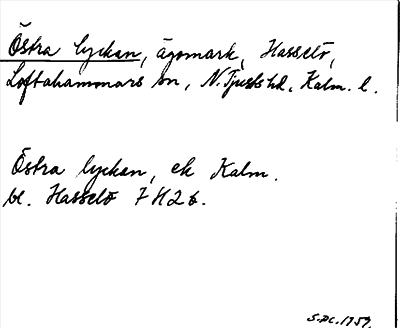 Östra lyckan, ägomark, Hasselö,
Loftahammars sn, N. Tjusts hd, Kalm. l.
Östra lyckan, ek Kalm.
bl. Hasselö 7H2b.
1959.